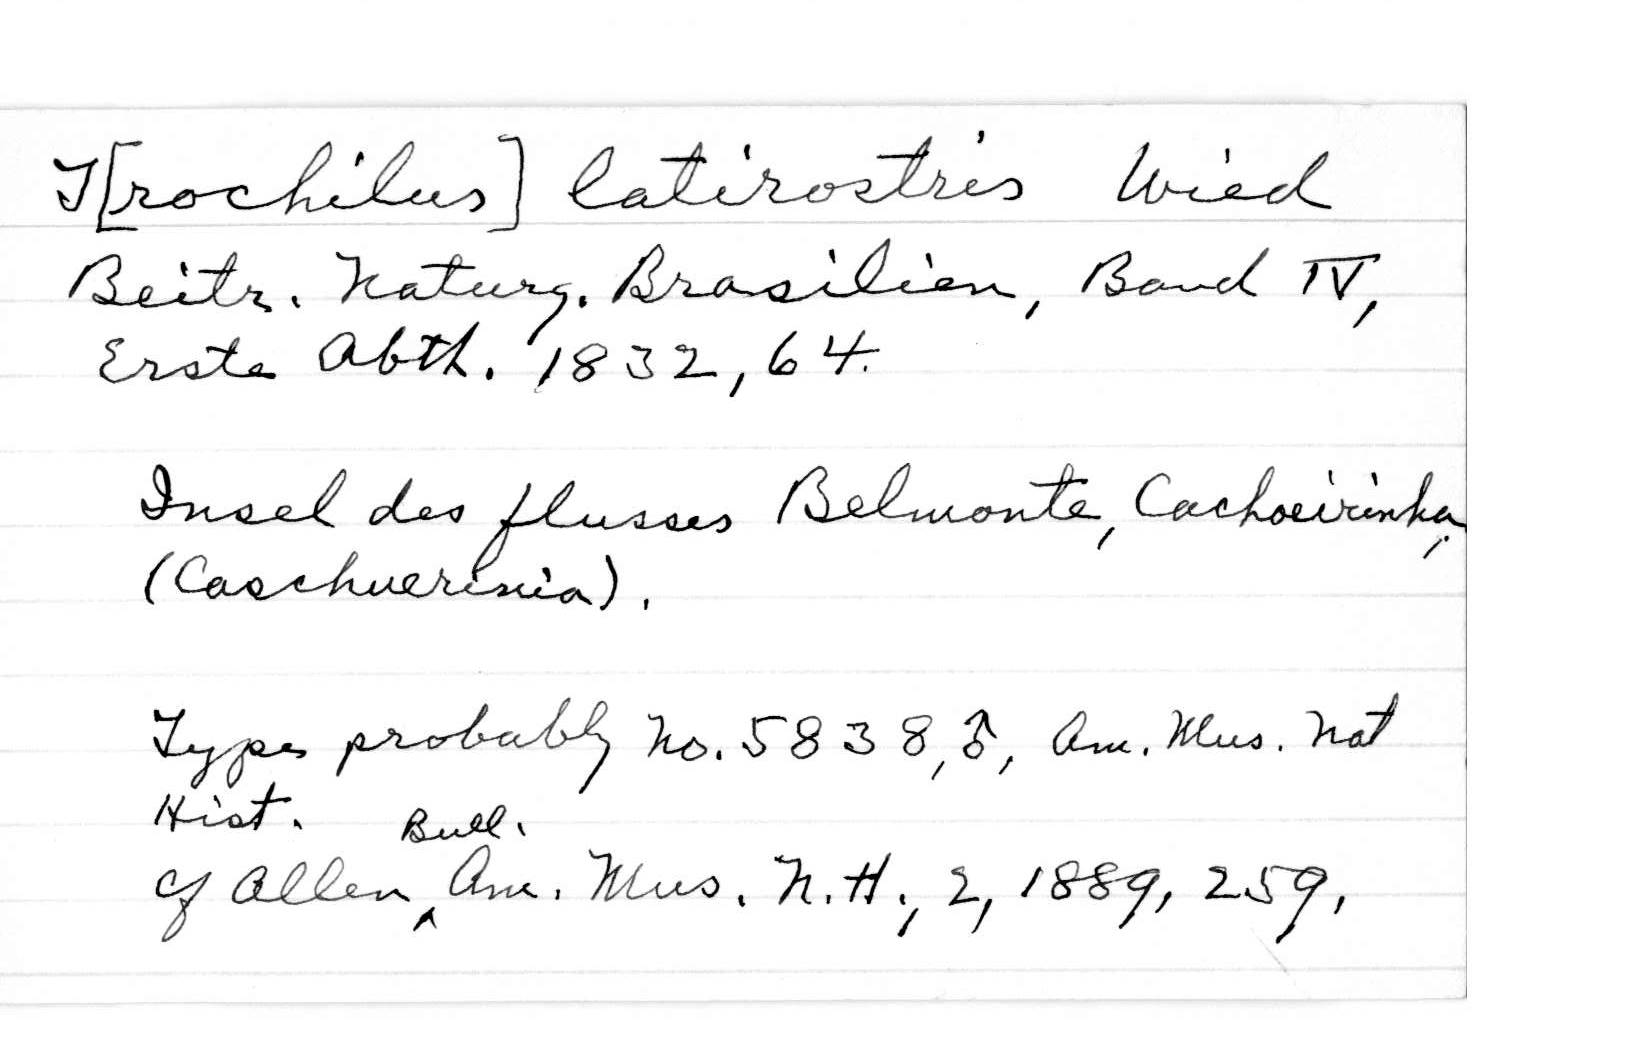 T[rochilus] latirostris Wied
Beitr. Naturg. Brasilien, Band IV,
Erste Abth. 1832, 64.
Insel des flusses Belmonte, Cachoeirinha,
(Caschuerinia).
Type probably No. 5838, ♂, Am. Mus. Nat
Hist.
Bull.
cf Allen, Am. Mus. N.H., 2, 1889, 259,